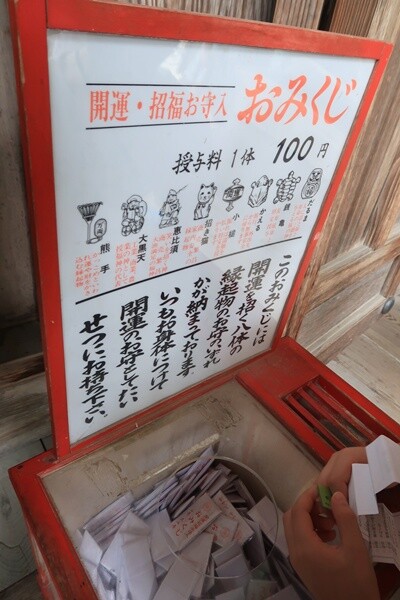 開運・招福お守入
おみくじ
授与料 1体 100円
だるま
銭亀
かえる
小槌
招き猫
恵比須
大黒天
熊手
このおみくじには
開運を招く八体の
縁起物のお守のいずれ
かが納まっております
いつもお身体につけて
開運のお守としてたい
せつにお持ち下さい。